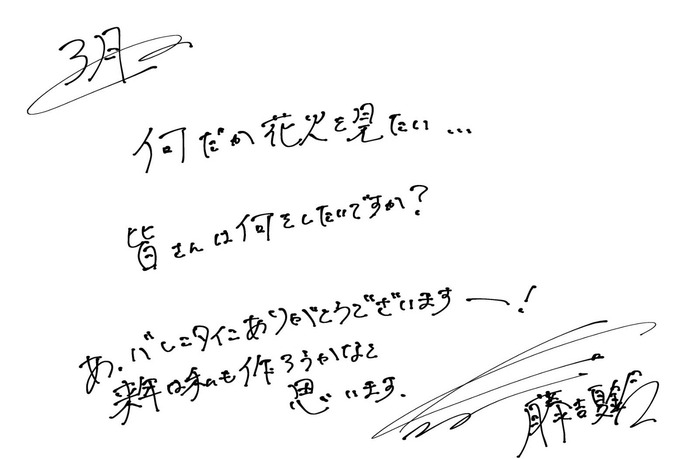 3月
何だか花火を見たい...
皆さんは何をしたいですか?
あ、バレンタインありがとうございますー!
来年は私も作ろうかなと
思います.
藤吉夏鈴